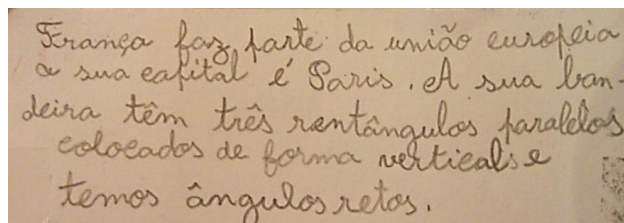 França faz parte da união europeia
a sua capital é Paris. A sua ban-
deira têm três rentângulos paralelos
colocados de forma verticals e
temos ângulos retos.